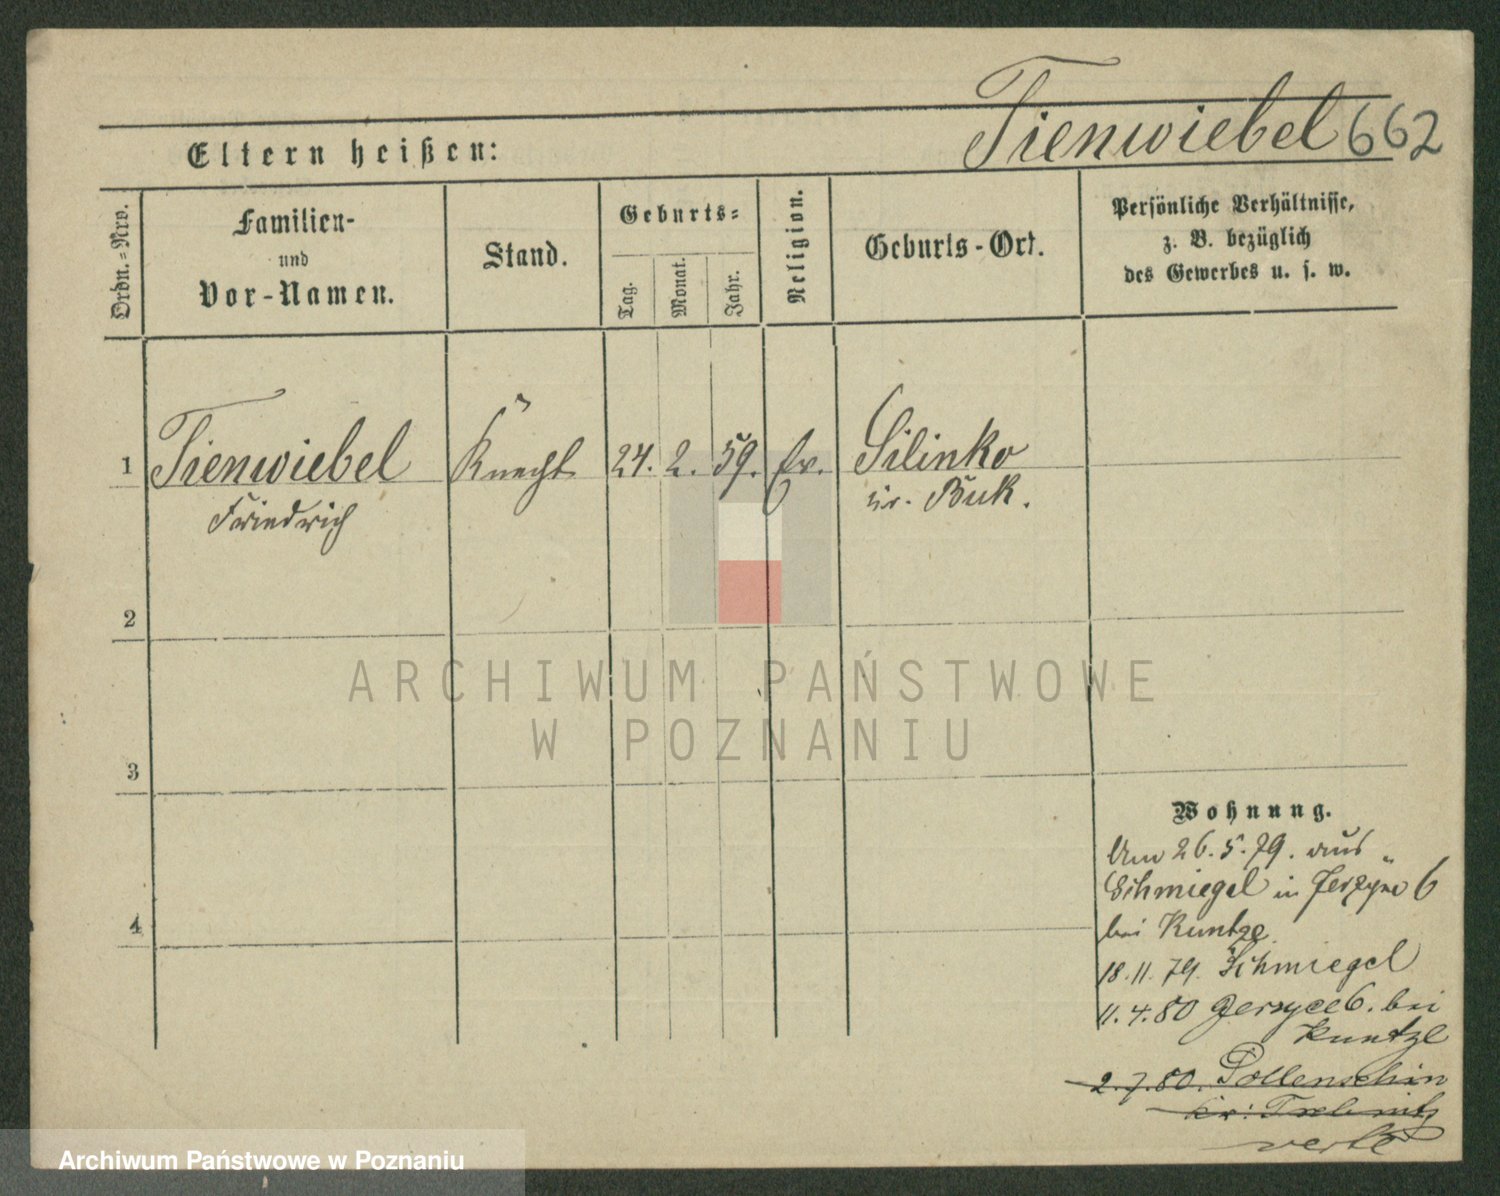 Tienwiebel 662
Eltern heißen:
Ordn.-Nro.
Familien-
und
Vor-Namen.
Stand.
Geburts-
Tag.
Monat.
Jahr.
Religion.
Geburts-Ort.
Persönliche Verhältnisse,
z. B. bezüglich
des Gewerbes u. s. w.
1 Tienwiebel Knecht 24. 2. 59. Ev. Silinko
Friedrich
kr. Buk.
2
ARCHIWUM PAŃSTWOWE
W POZNANIU
3
Wohnung.
Am 26.5.79. aus
Schmiegel in Jerzyce 6
bei Kuntze
4
18.11.79. Schmiegel
11.4.80 Jerzyce 6. bei
Kuntze
2.7.80. Pollenschin
kr: Trebnitz
verte
Archiwum Państwowe w Poznaniu